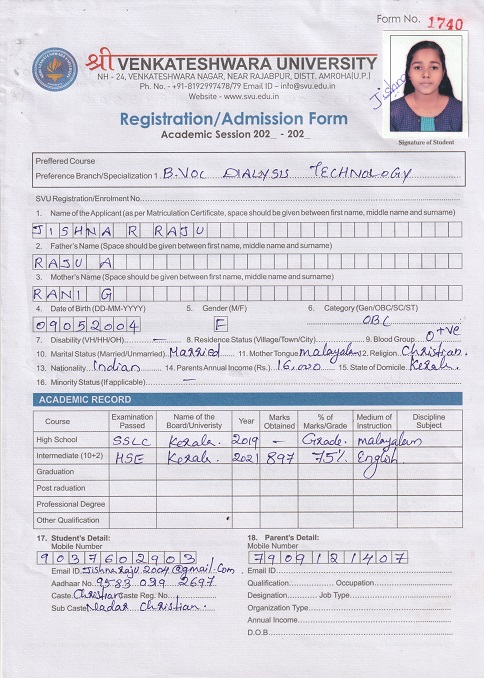 Form No. 1740
श्री VENKATESHWARA UNIVERSITY
NH - 24, VENKATESHWARA NAGAR, NEAR RAJABPUR, DISTT. AMROHA(U.P.)
Ph. No. - +91-8192997478/79 Email ID – info@svu.edu.in
Website - www.svu.edu.in
Registration/Admission Form
Academic Session 202_ - 202_
Jishna
Signature of Student
Prefferred Course
Preference Branch/Specialization 1. B.VOC DIALYSIS TECHNOLOGY
SVU Registration/Enrolment No.
1. Name of the Applicant (as per Matriculation Certificate, space should be given between first name, middle name and surname)
JISHNA R RAJU
2. Father's Name (Space should be given between first name, middle name and surname)
RAJU A
3. Mother's Name (Space should be given between first name, middle name and surname)
RANI G
4. Date of Birth (DD-MM-YYYY) 5. Gender (M/F) 6. Category (Gen/OBC/SC/ST)
09052004 F OBC
7. Disability (VH/HH/OH) — 8. Residence Status (Village/Town/City) 9. Blood Group O+ve
10. Marital Status (Married/Unmarried). Married 11. Mother Tongue malayalam 12. Religion Christian.
13. Nationality. Indian 14. Parents Annual Income (Rs.) 16,000 15. State of Domicile. Kerala.
16. Minority Status (If applicable) —
ACADEMIC RECORD
Course Examination Passed Name of the Board/Univeristy Year Marks Obtained % of Marks/Grade Medium of Instruction Discipline Subject
High School SSLC Kerala. 2019 — Grade. malayalam
Intermediate (10+2) HSE Kerala. 2021 897 75% English.
Graduation
Post raduation
Professional Degree
Other Qualification
17. Student's Detail: 18. Parent's Detail:
Mobile Number Mobile Number
9037602903 7909121407
Email ID. Jishnaraju2004@gmail.com Email ID
Aadhaar No. 9583 029 2697 Qualification Occupation
Caste. Christian Caste Reg. No. Designation Job Type
Sub Caste Nadar Christian. Organization Type
Annual Income
D.O.B.